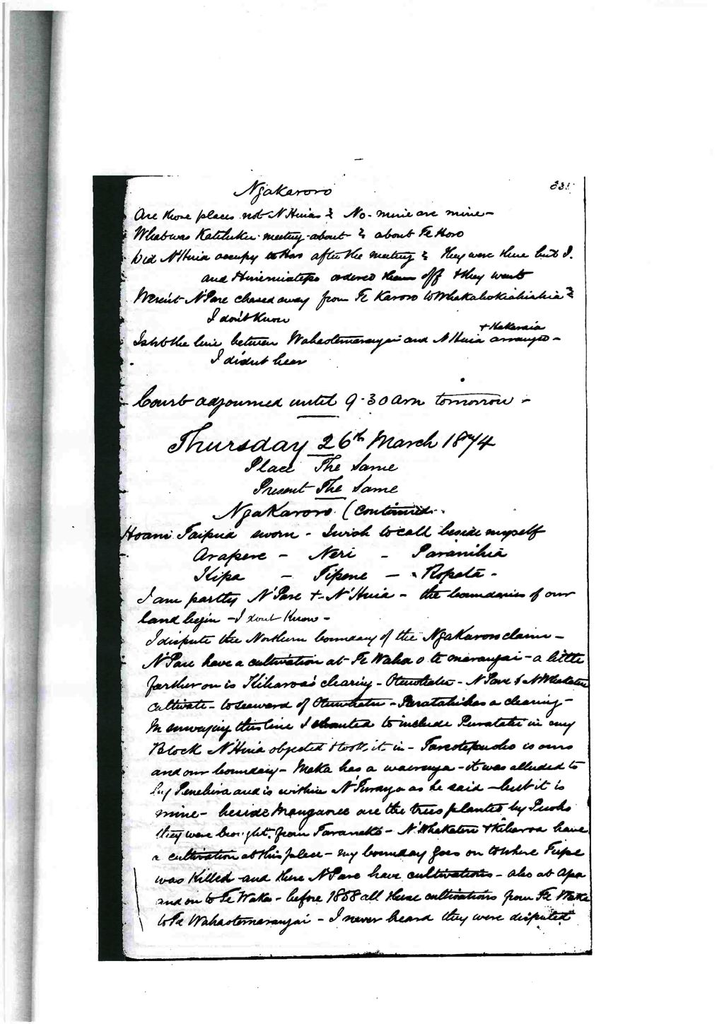 Ngakaroro
Are those places not N'Huias? No - mine are mine -
What was Katihiku meeting about - ? about Te Horo
Did N'Huia occupy te Horo after the meeting ? They were there but I
and ordered them off & they went
Weren't N'Pare chased away from Te Karoro to ?
I don't know
+ Hakaraia
Isnt the line between and N Huia arranged -
I didn't hear
Court adjourned until 9.30 am tomorrow -
Thursday 26th March 1874
Place The Same
Present The Same
NgaKaroro (Continued
Hoani Taipua sworn - I wish to call beside myself
Arapere - Neri - Paranihia
Kipa - Tipene - Ropata -
I am partly N'Pare + N'Huia - the boundaries of our
land begin - I dont know -
I dispute the Northern boundary of the NgaKaroro claim -
N'Pare have a cultivation at Te Waha o te marangai - a little
farther on is Kiharoa's clearing - - N'Pare & N'Whakatere
cultivate - to seaward of - a clearing -
In surveying this line I wanted to include in my
Block N'Huia objected & took it in - is ours
and our boundary - Maka has a - it was alluded to
by and is within as he said - but it is
mine - beside are the trees planted by
they were brought from Taranaki - N'Whakatere & Kiharoa have
a cultivation at this place - my boundary goes on to where
was killed - and there N'Pare have cultivations - also at
and on to Te Waka - before 1868 all these cultivations from Te Waka
to Te Wahaotemarangai - I never heard they were disputed